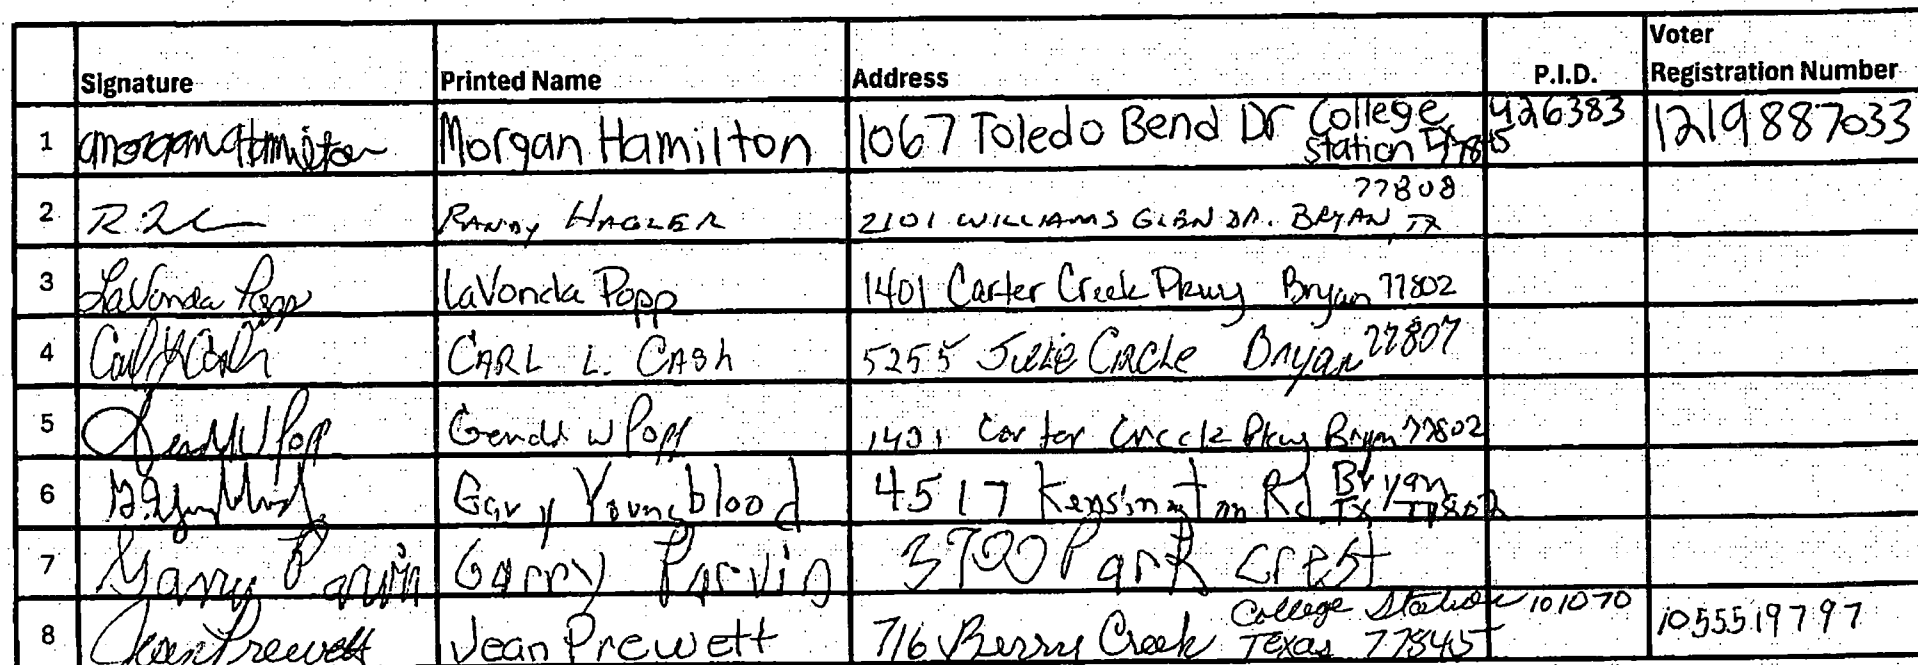 Signature Printed Name Address P.I.D. Voter Registration Number
1 Morgan Hamilton Morgan Hamilton 1067 Toledo Bend Dr College Station TX 77845 426383 1219887033
2 RANDY HAGLER 2101 WILLIAMS GLEN DR. BRYAN, TX 77808
3 LaVonda Popp LaVonda Popp 1401 Carter Creek Pkwy Bryan 77802
4 Carl L Cash CARL L. CASH 5255 Circle Bryan 77807
5 W Popp W Popp 1401 Carter Creek Pkwy Bryan 77802
6 Gary Youngblood 4517 Kensington Rd Bryan TX 77802
7 Garry Parvin Garry Parvin 3700 Park Crest
8 Jean Prewett Jean Prewett 716 Berry Creek College Station Texas 77845 101070 1055519797